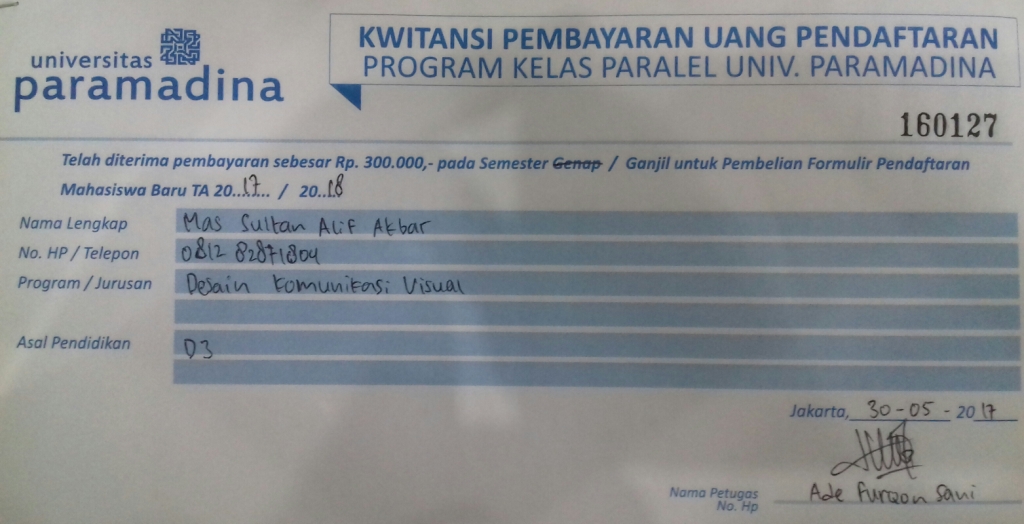 universitas
paramadina
KWITANSI PEMBAYARAN UANG PENDAFTARAN
PROGRAM KELAS PARALEL UNIV. PARAMADINA
160127
Telah diterima pembayaran sebesar Rp. 300.000,- pada Semester Genap / Ganjil untuk Pembelian Formulir Pendaftaran
Mahasiswa Baru TA 20..17.. / 20..18
Nama Lengkap Mas Sultan Alif Akbar
No. HP / Telepon 0812 82871804
Program / Jurusan Desain Komunikasi Visual
Asal Pendidikan D3
Jakarta, 30-05-2017
Nama Petugas Ade Furqon Sani
No. Hp